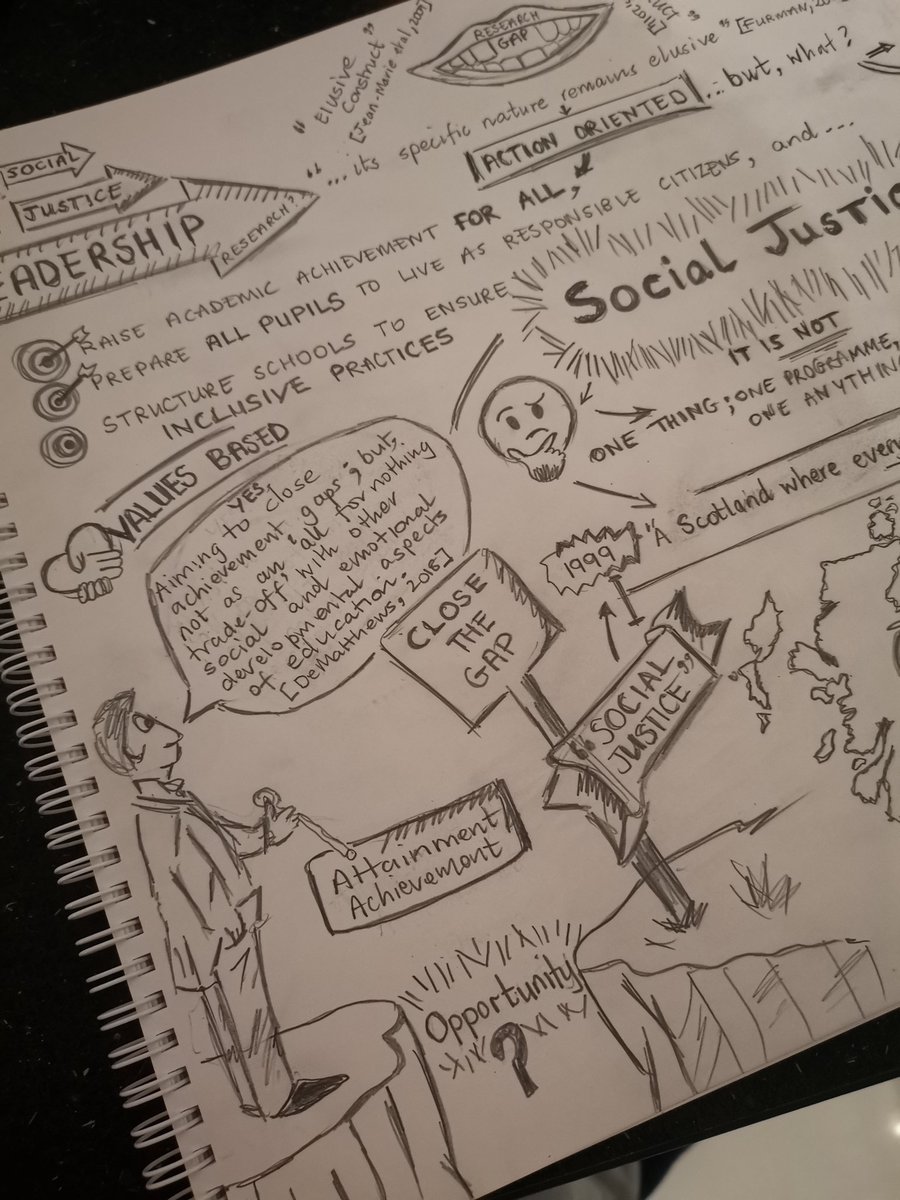 RESEARCH
GAP
"Elusive
Construct"
[Jean-Marie et al, 2009]
2014]
"...its specific nature remains elusive" [FURMAN,
ACTION ORIENTED
...but, what?
SOCIAL
JUSTICE
LEADERSHIP
[RESEARCH?]
RAISE ACADEMIC ACHIEVEMENT FOR ALL,
PREPARE ALL PUPILS TO LIVE AS RESPONSIBLE CITIZENS, and...
STRUCTURE SCHOOLS TO ENSURE
INCLUSIVE PRACTICES
Social Justic
IT IS NOT
ONE THING; ONE PROGRAMME,
ONE ANYTHING
VALUES BASED
YES,
Aiming to close
achievement 'gaps'; but,
not as an 'all for nothing
trade-off', with other
social and emotional
developmental aspects
of education.
[DeMatthews, 2018]
1999
"A Scotland where every
CLOSE
THE
GAP
"SOCIAL
JUSTICE"
Attainment
Achievement
Opportunity
?